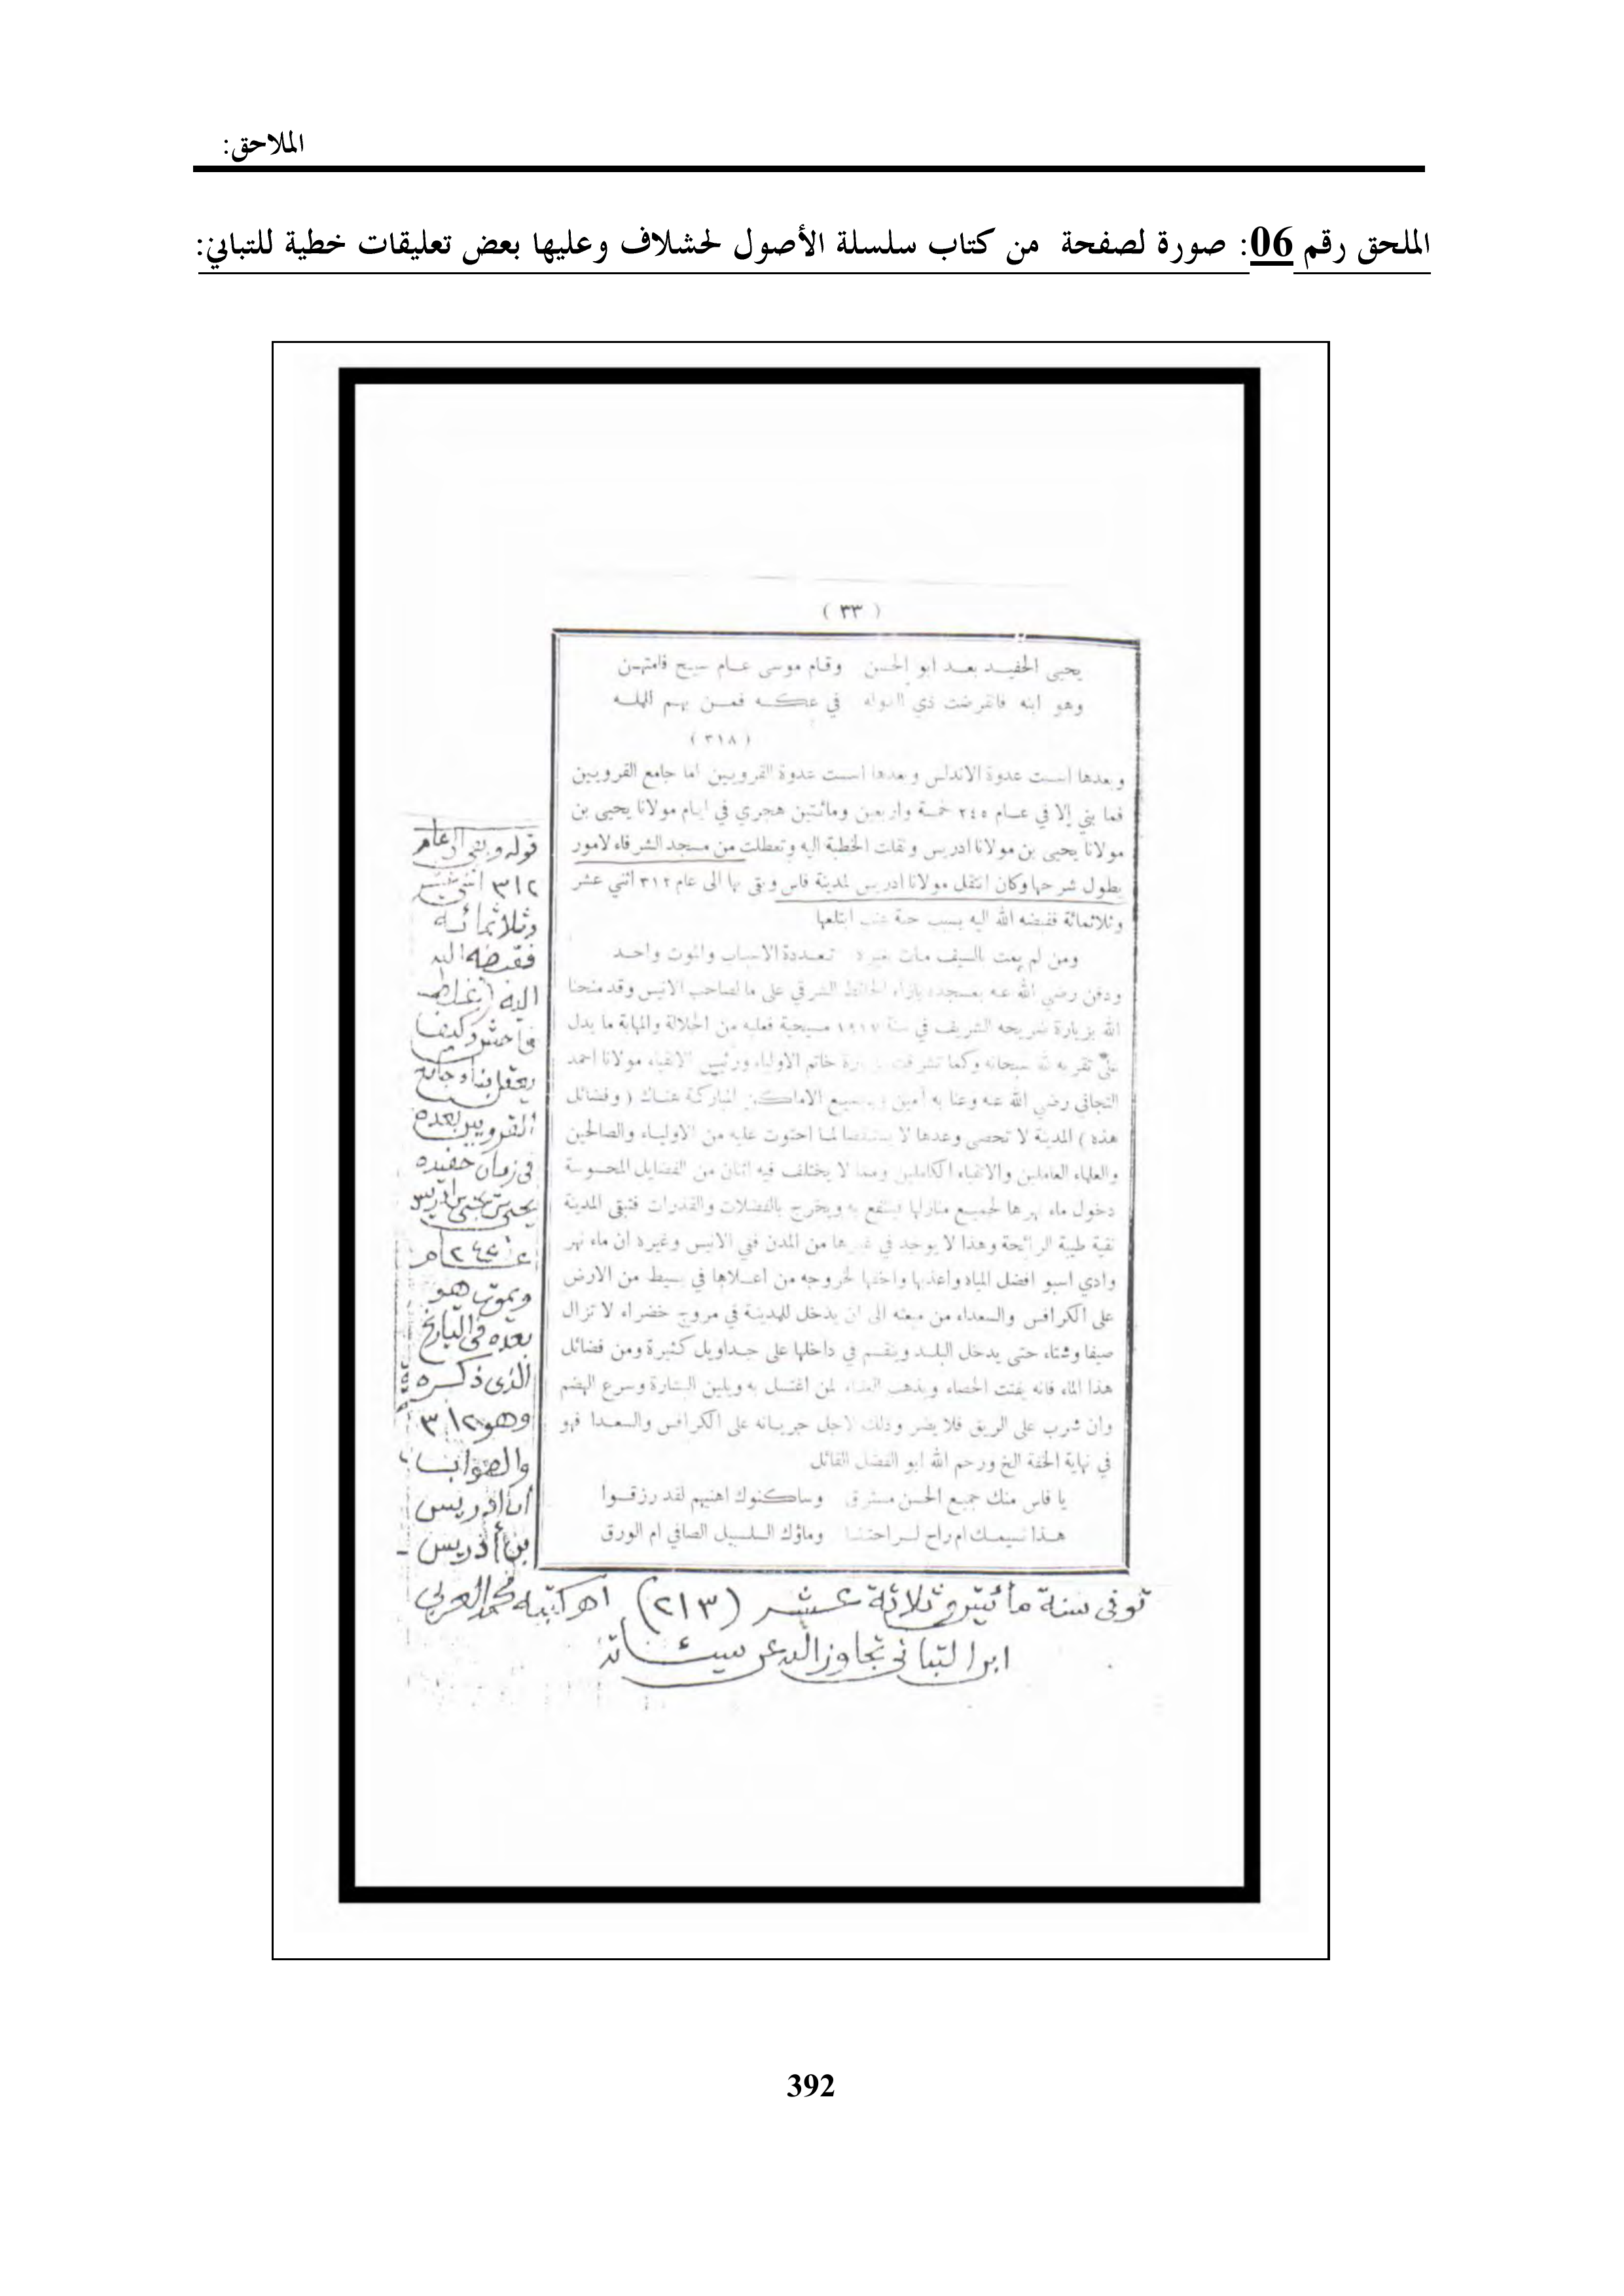 الملاحق:
الملحق رقم 06: صورة لصفحة من كتاب سلسلة الأصول لحشلاف وعليها بعض تعليقات خطية للتباني:
( ٣٣ )
يحيى الحفيـد بعـد ابو الحسن وقـام موسى عـام سيح فامتهـن
وهو ابنه فانقرضت ذي الدوله في عكـه فمـن بهـم المله
( ٣١٨ )
وبعدها اسست عدوة الاندلس وبعدها اسست عدوة القرويين اما جامع القرويين
فما بني إلا في عـام ٢٤٥ خمسة واربعين ومائتين هجري في ايام مولانا يحيى بن
مولانا يحيى بن مولانا ادريس ونقلت الخطبة اليه وتعطلت من مسجد الشرفاء لامور
يطول شرحها وكان انتقل مولانا ادريس لمدينة فاس وبقى بها الى عام ٣١٢ اثني عشر
وثلاثمائة فقبضه الله اليه بسبب حبة عنب ابتلعها
ومن لم يمت بالسيف مات بغيره تعـددة الاسباب والموت واحـد
ودفن رضي الله عنه بمسجده بازاء الحائط الشرقي على ما لصاحب الانيس وقد منحنا
الله بزيارة ضريحه الشريف في سنة ١٩١٧ مسيحية فعليه من الجلالة والمهابة ما يدل
على تقربه لله سبحانه وكما تشرفت بزيارة خاتم الاولياء ورئيس الاتقياء مولانا احمد
التجاني رضي الله عنه وعنا به آمين وبجميع الاماكن المباركة هناك ( وفضائل
هذه ) المدينة لا تحصى وعدها لا يستقصا لما احتوت عليه من الاولياء والصالحين
والعلماء العاملين والاتقياء الكاملين ومما لا يختلف فيه اثنان من الفضايل المحسوسة
دخول ماء نهرها لجميع منازلها فينتفع به ويخرج بالفضلات والقذرات فتبقى المدينة
نقية طيبة الرائحة وهذا لا يوجد في غيرها من المدن ففي الانيس وغيره ان ماء نهر
وادي اسبو افضل المياه واعذبها واخفها لخروجه من اعـلاها في بسيط من الارض
على الكرافس والسعداء من منبعه الى ان يدخل للمدينة في مروج خضراء لا تزال
صيفا وشتاء حتى يدخل البلـد وينقسم في داخلها على جـداويل كثيرة ومن فضائل
هذا الماء فانه يفتت الحصاء ويذهب لمن اغتسل به ويلين البشارة وسرع الهضم
وان شرب على الريق فلا يضر وذلك لاجل جريـانه على الكرافس والسعـدا فهو
في نهاية الخفة الخ ورحم الله ابو الفضل القائل
يا فاس منك جميع الحسن مسترق وساكنوك اهنيهم لقد رزقـوا
هـذا نسيمـك ام راح لـراحتنا وماؤك السلسيل الصافي ام الورق
قوله وبقي الى عام
٣١٢ اثني عشر
وثلاثمائـة
فقبضه الله
اليه (غلط
فاحش وكيف
يعقل بناء جامع
القرويين بعده
في زمان حفيده
يحيى بن يحيى بن ادريس
عـام ٢٤٥
ويموت هو
بعده في التاريخ
الذى ذكـره
وهو ٣١٢
والصوابـ
أن ادريس
بن أدريس
توفى سنة مأئتين وثلاثة عشـر (٢١٣) اهـ كتبه محمد العربي
ابن التباني تجاوز الله عن سيئـاته
392